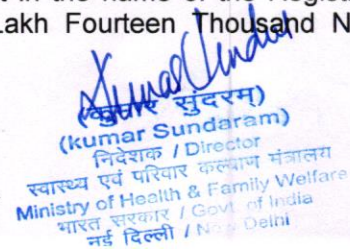 in the name of the Regist
Lakh Fourteen Thousand N
(कुमार सुंदरम)
(kumar Sundaram)
निदेशक / Director
स्वास्थ्य एवं परिवार कल्याण मंत्रालय
Ministry of Health & Family Welfare
भारत सरकार / Govt. of India
नई दिल्ली / New Delhi